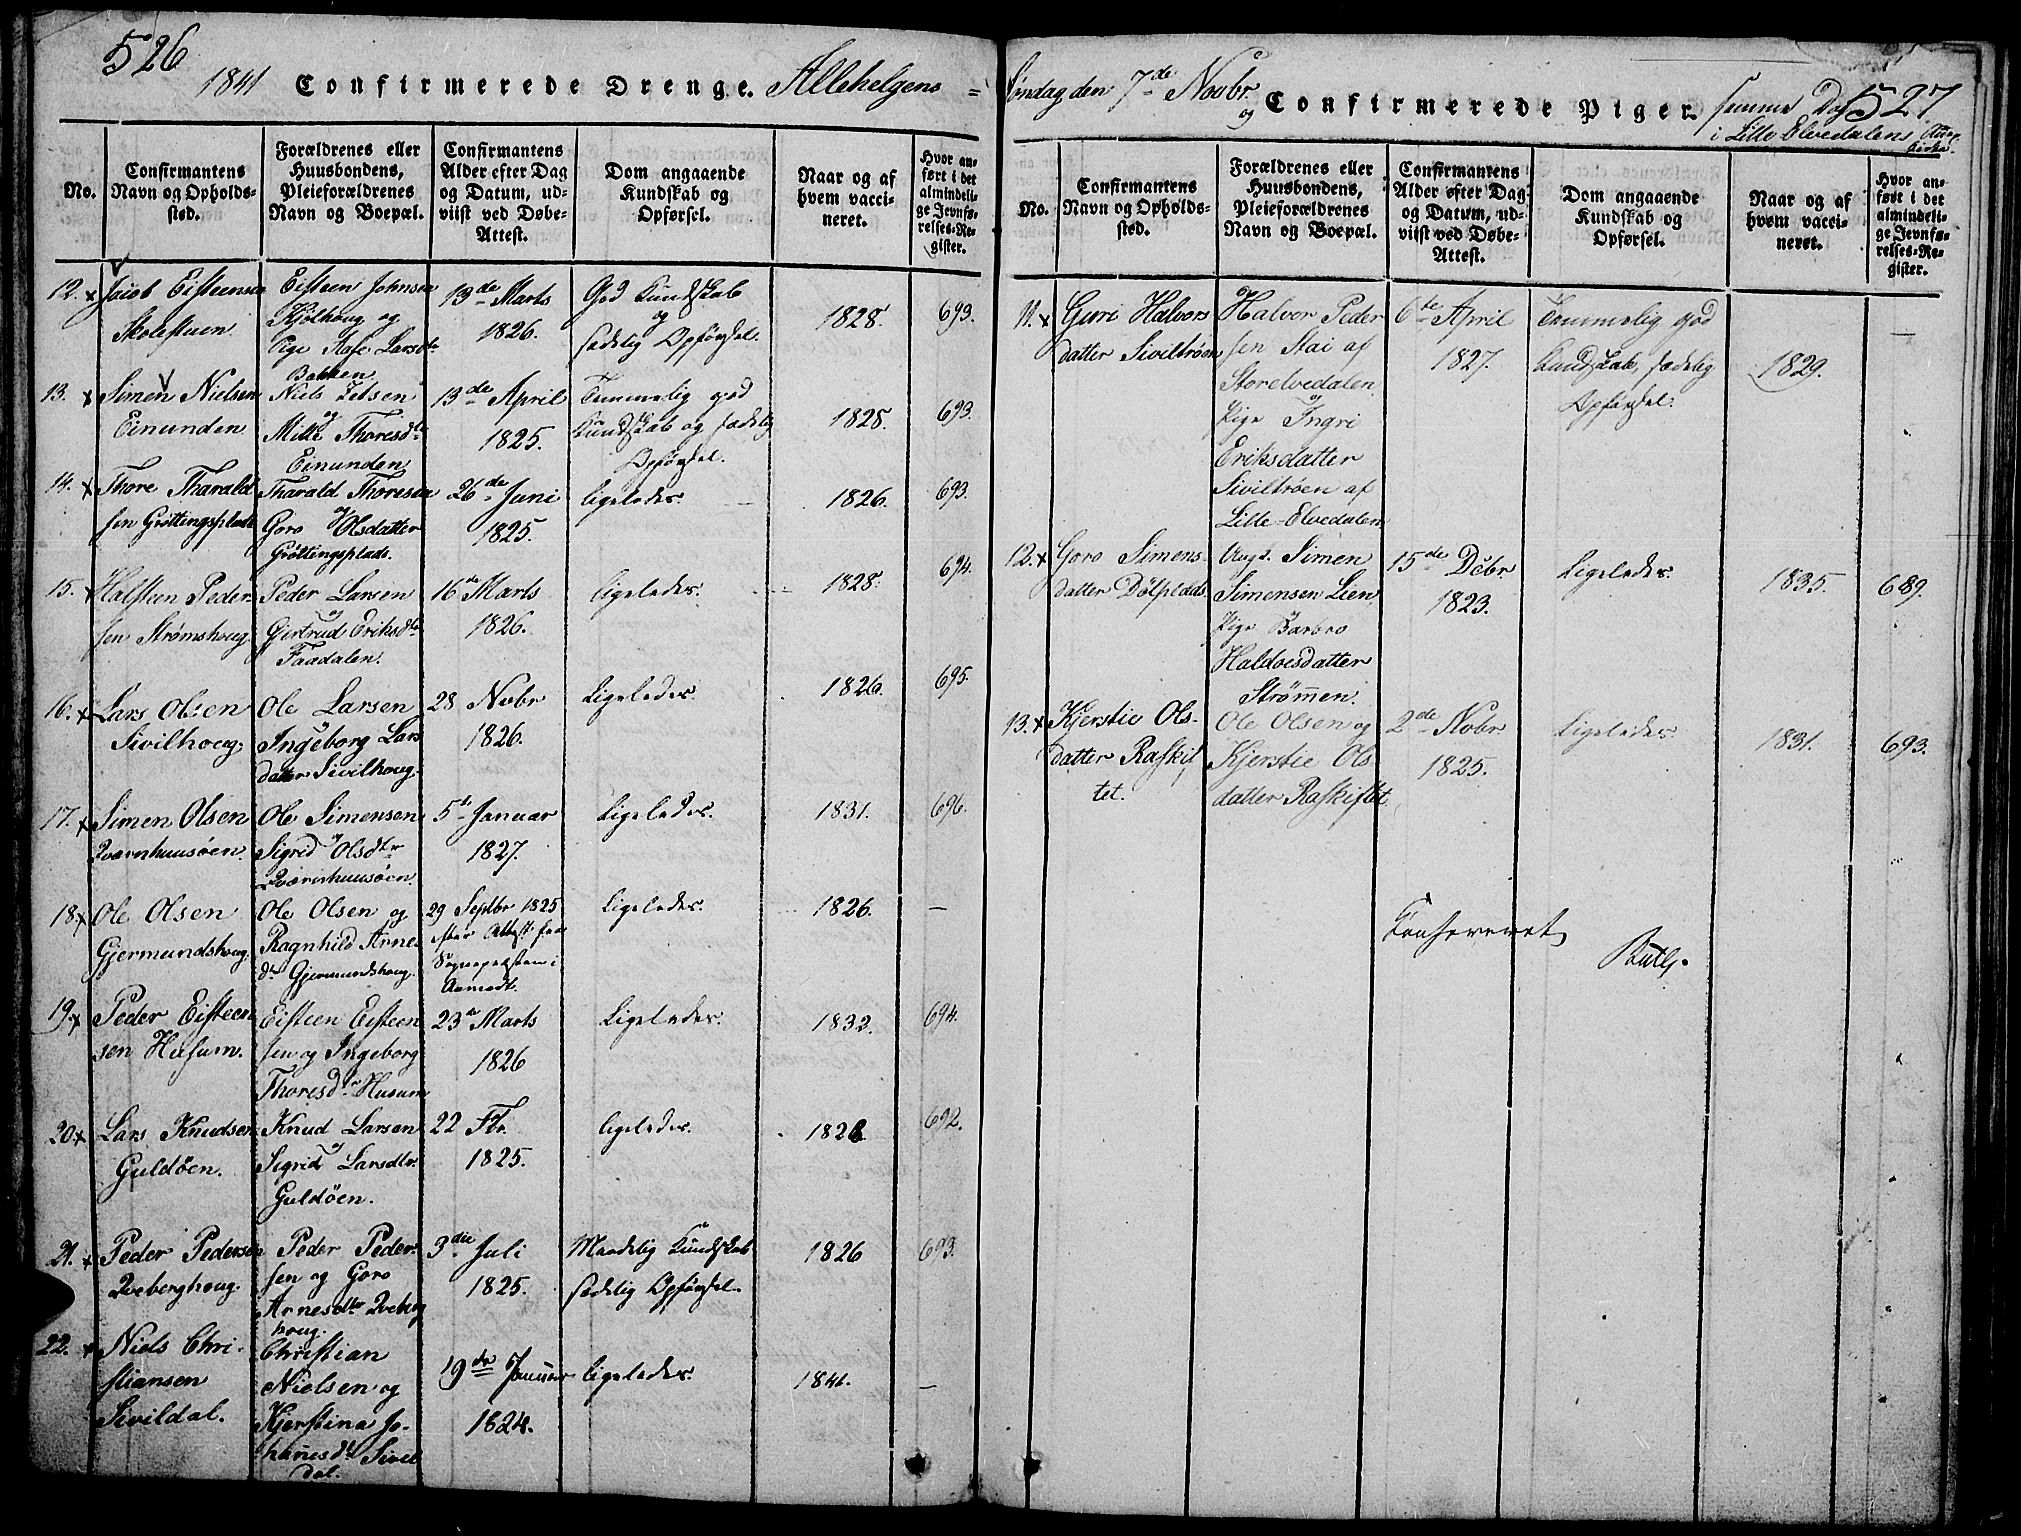 526
1841 Confirmerede Drenge. Allehelgens =
No.
Confirmantens Navn og Opholds-sted.
Forældrenes eller Huusbondens, Pleieforældrenes Navn og Boepæl.
Confirmantens Alder efter Dag og Datum, ud-viist ved Døbe-Attest.
Dom angaaende Kundskab og Opførsel.
Naar og af hvem vacci-neret.
Hvor an-ført i det almindeli-ge Jevnfø-relses-Re-gister.
12. x Jacob Eisteensen
Skolestuen
Eisteen Johnsen
Kjølhoug og
Pige Aase Larsdtr
Bakken
13de Marts
1826.
God Kundskab
og
sædelig Opførsel.
1828.
693.
13. x Simen Nielsen
Einunden
Niels Jetsen
og
Mitte Thoresdtr
Einunden
13de April
1825.
Temmelig god
Kundskab og sædelig
Opførsel.
1828.
693.
14. x Thore Tharald
sen Grøttingsplads
Tharald Thoresen
og
Goro Olsdatter
Grøttingsplads.
26de Juni
1825.
ligeledes.
1826.
693.
15. x Halsteen Peder
sen Strømshoug
Peder Larsen
og
Gjertrud Eriksdtr
Faadalen.
16de Marts
1826.
ligeledes.
1828.
694.
16. x Lars Olsen
Sivilhoug.
Ole Larsen
og
Ingeborg Lars
datter Sivilhoug.
28 Novbr
1826.
Ligeledes.
1826.
695.
17. x Simen Olsen
Qværnhuusøen.
Ole Simensen
og
Sigrid Olsdtr
Qværnhuusøen.
5te Januar
1827.
Ligeledes.
1831.
696.
18. x Ole Olsen
Gjermundshoug.
Ole Olsen og
Ragnhild Arne
dtr Gjermundshoug.
29 Septbr 1825
efter Attest fra
Sognepræsten i
Aamodt.
Ligeledes.
1826.
—
19. x Peder Eisteen
sen Husum.
Eisteen Eisteen
sen og Ingeborg
Thoresdtr Husum
23de Marts
1826
Ligeledes.
1832.
694.
20. x Lars Knudsen
Guldøen.
Knud Larsen
og
Sigrid Larsdtr.
Guldøen.
22 Fbr.
1825.
ligeledes.
692.
21. x Peder Pedersen
Qveberghoug.
Peder Peder
sen og Goro
Arnesdtr Qveberg
houg.
3die Juli
1825.
Maadelig Kundskab
sædelig Opførsel.
1826
693.
22. x Niels Chri-
stiansen
Sivildal.
Christian
Nielsen og
Kjerstina Jo-
hanesdtr Sivil
dal.
19de Januar
1824.
ligeledes.
1841.
—
527
Søndag den 7de Novbr. og Confirmerede Piger. samme Dag
i Lille Elvedalens
No.
Confirmantens Navn og Opholds-sted.
Forældrenes eller Huusbondens, Pleieforældrenes Navn og Boepæl.
Confirmantens Alder efter Dag og Datum, ud-viist ved Døbe-Attest.
Dom angaaende Kundskab og Opførsel.
Naar og af hvem vacci-neret.
Hvor an-ført i det almindeli-ge Jevnfø-relses-Re-gister.
11. x Guri Halvors
datter Siviltrøen
Halvor Peder
sen Stai af
Storelvedalen
og
Pige Ingri
Eriksdatter
Siviltrøen af
Lille-Elvedalen
6te April
1827.
Temmelig god
Kundskab, sædelig
Opførsel.
1829.
—
12. x Goro Simens
datter Dølplads.
Ungk. Simen
Simensen Lien
Pige Barbro
Haldoesdatter
Strømmen.
15de Dcbr.
1823.
Ligeledes.
1835.
689.
13. x Kjerstie Ols-
datter Raskif
tet.
Ole Olsen og
Kjerstie Ols
datter Raskiftet
2de Novbr
1825.
Ligeledes.
1831.
693.